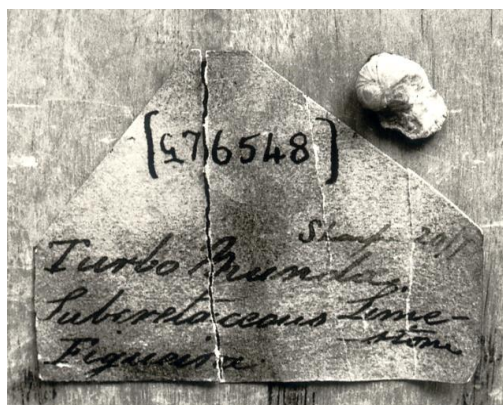 [G76548]
Sharpe
Turbo Munda
Subcretaceous Lime-
stone
Figueira.